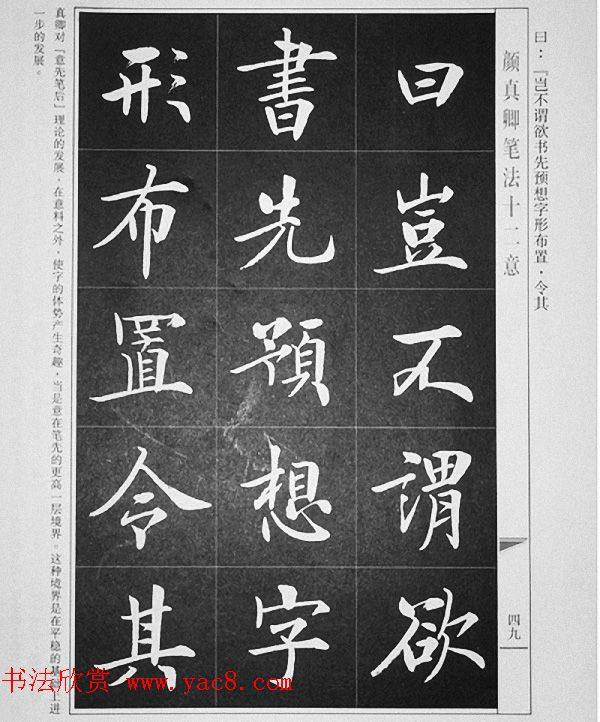 曰：『岂不谓欲书先预想字形布置，令其
颜真卿笔法十二意
四九
曰豈不谓欲
書先預想字
形布置令其
真卿对『意先笔后』理论的发展，在意料之外，使字的体势产生奇趣，当是意在笔先的更高一层境界。这种境界是在平稳的基础上进
一步的发展。
书法欣赏 www.yac8.com